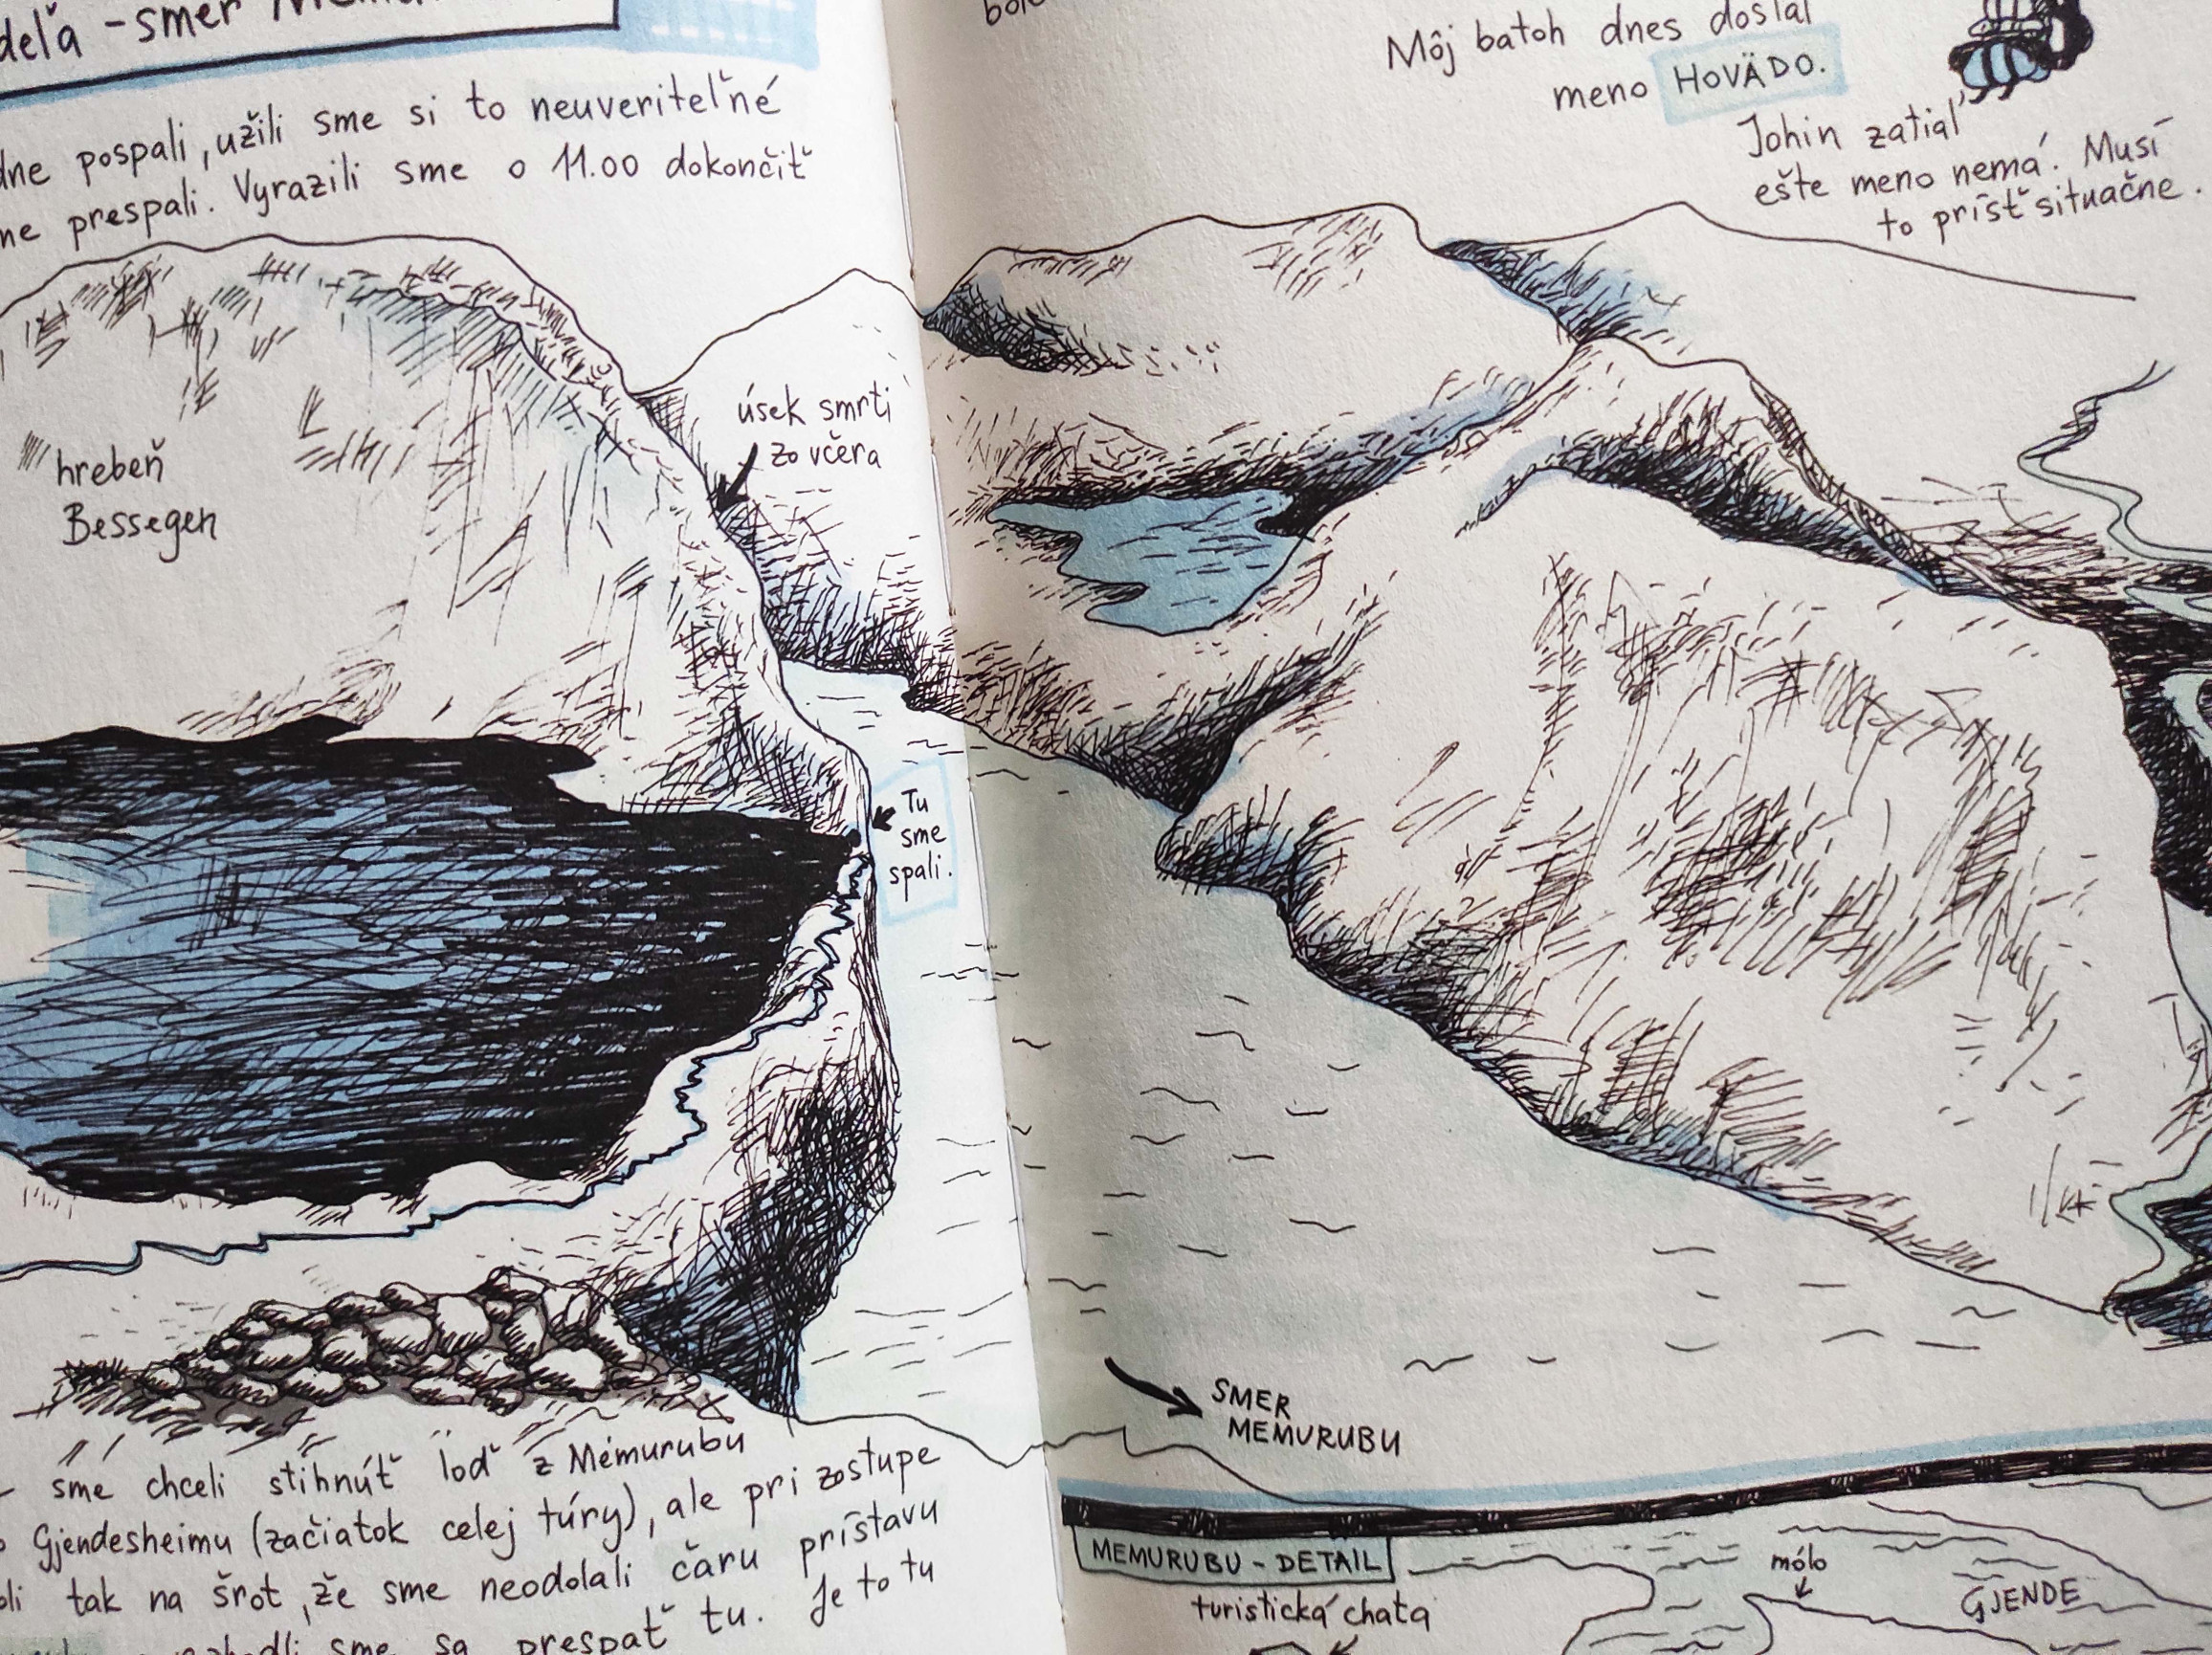 deľa - smer
dne pospali, užili sme si to neuveriteľné
me prespali. Vyrazili sme o 11.00 dokončiť
hrebeň
Bessegen
úsek smrti
zo včera
Tu
sme
spali.
sme chceli stihnúť loď z Memurubu
Gjendesheimu (začiatok celej túry), ale pri zostupe
tak na šrot, že sme neodolali čaru prístavu
sme sa prespať tu. Je to tu
Môj batoh dnes dostal
meno HOVÄDO.
Johin zatiaľ
ešte meno nemá. Musí
to prísť situačne.
SMER
MEMURUBU
MEMURUBU - DETAIL
turistická chata
mólo
GJENDE